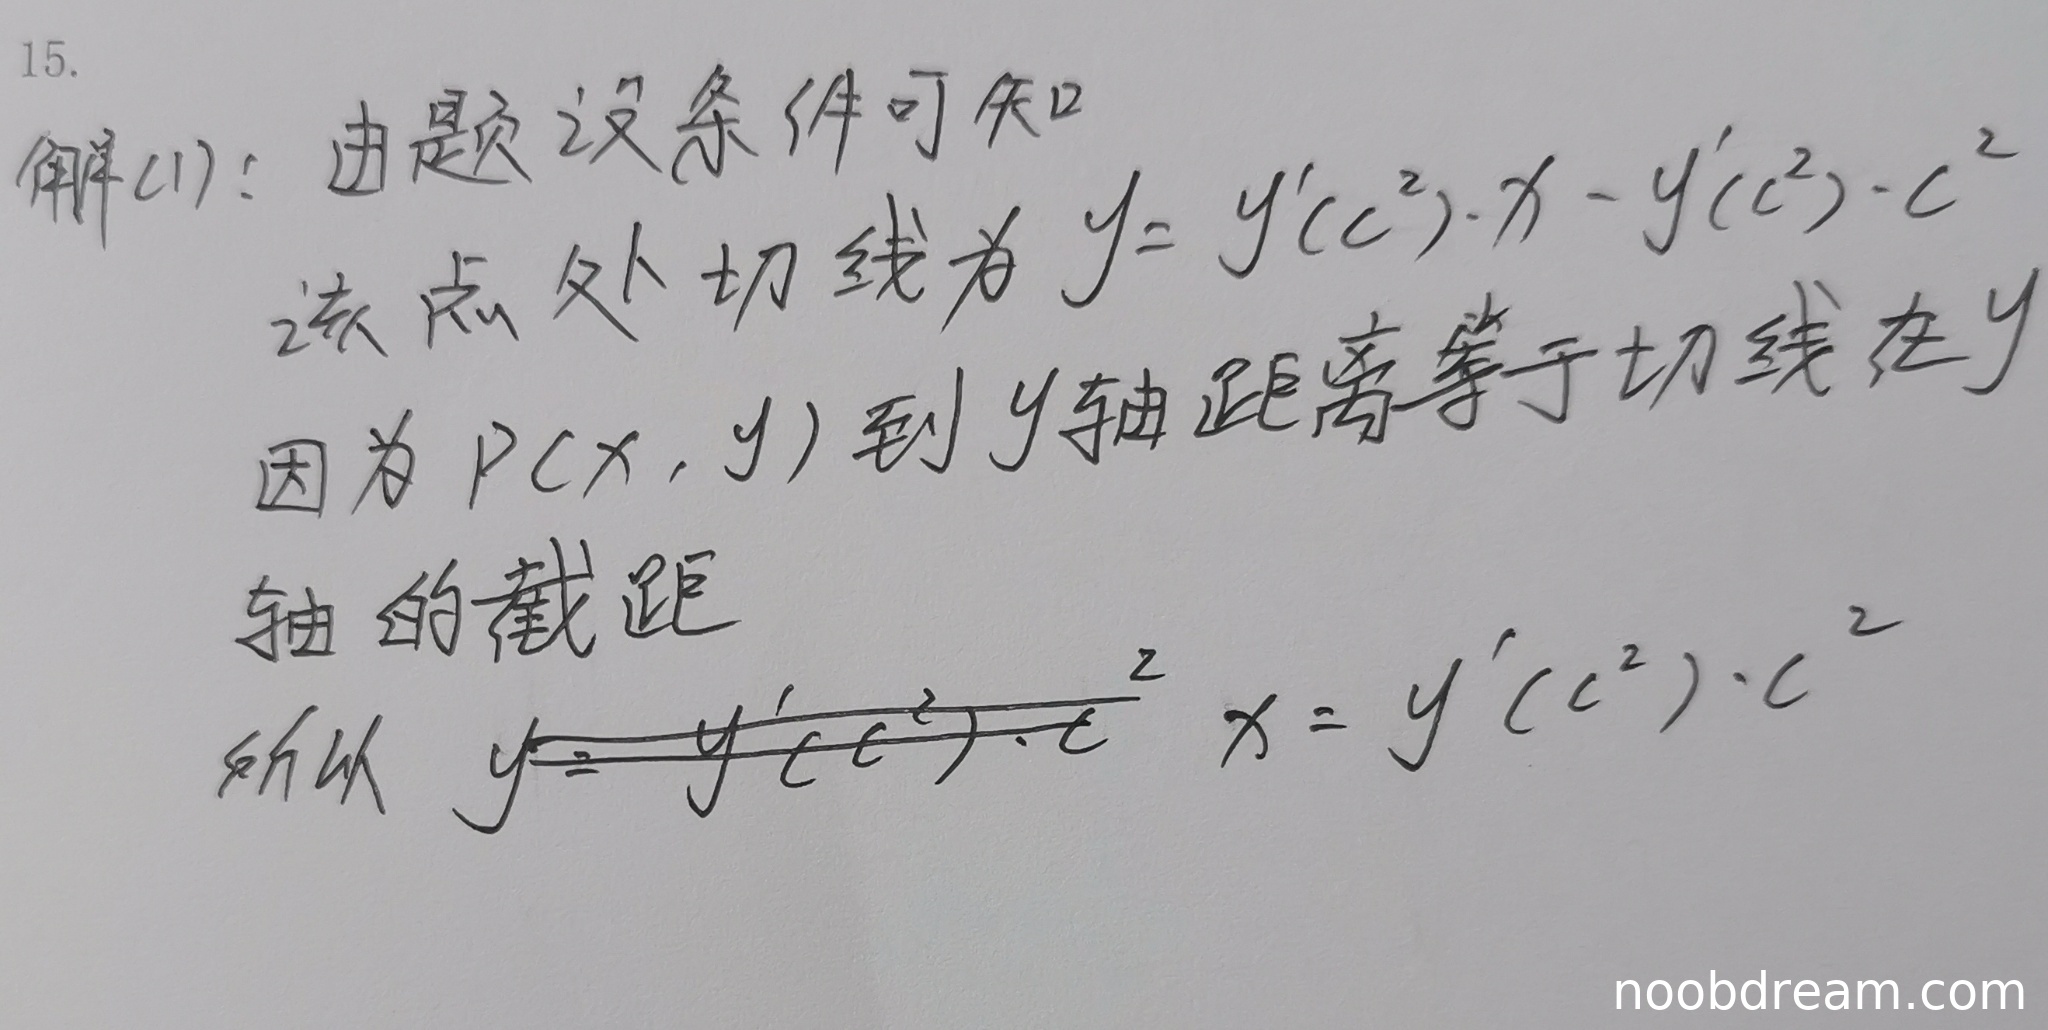 15.
解(1): 由题设条件可知
该点处切线为 y = y'(c²)·x - y'(c²)·c²
因为 P(x, y) 到 y轴距离等于切线在y
轴的截距
所以 y = y'(c²)·c² x = y'(c²)·c²
noobdream.com